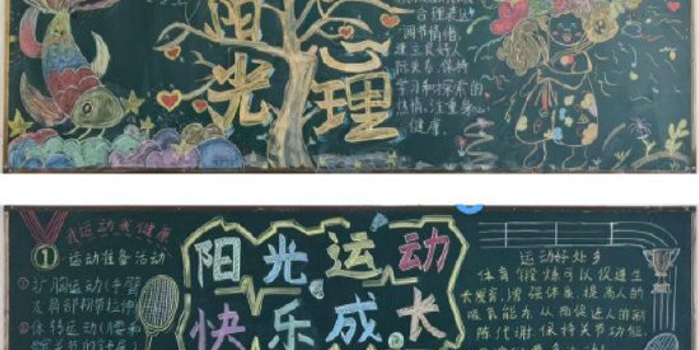 阳光
心理
合理表达
调节情绪
建立良好人
际关系,保持
学习和探索的
热情,注重身心
健康。
我运动我健康
① 运动准备活动
①扩胸运动(手臂
及肩部韧带拉伸)
②体转运动(腰和
阳光运动
快乐成长
运动好处多
体育锻炼可以促进生
长发育,增强体质,提高人的
吸氧能力,从而促进人的新
陈代谢,保持关节功能,